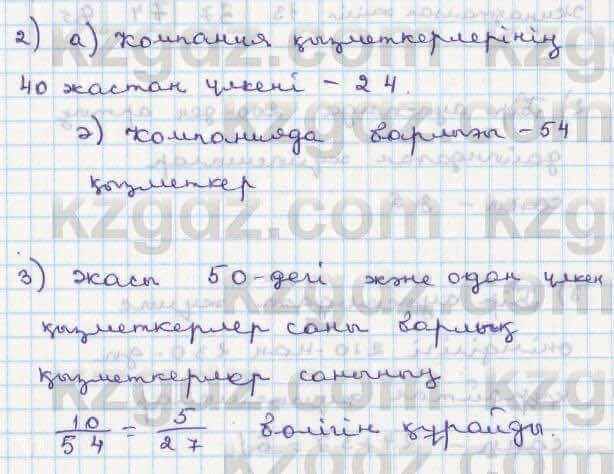 2) а) Компания қызметкерлерінің
40 жастан үлкені - 24.
ә) Компанияда барлығы - 54
қызметкер
3) Жасы 50-дегі және одан үлкен
қызметкерлер саны барлық
қызметкерлер санының
10/54 = 5/27 бөлігін құрайды.